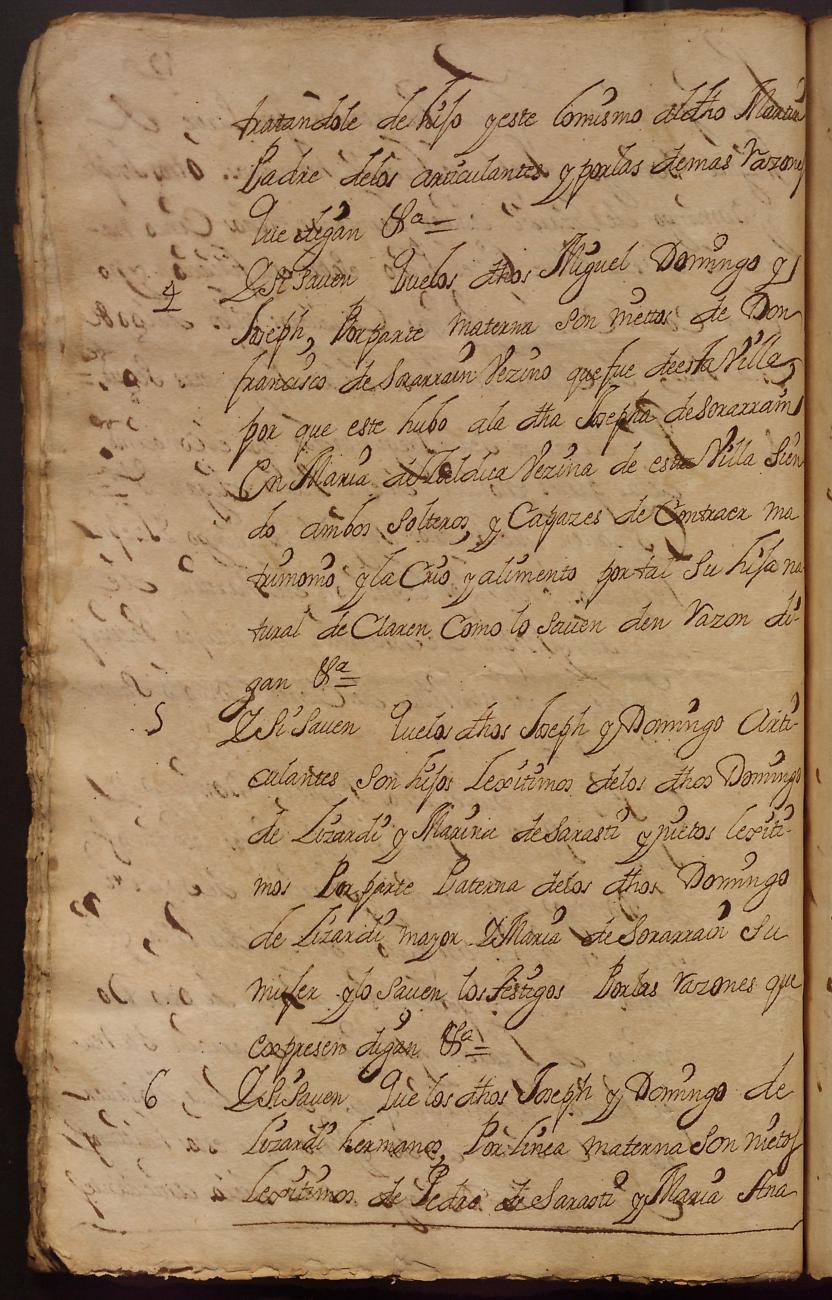 tratandole de hijo y este lo mismo al dho Martin
Padre delos articulantes y por las demas razones
que digan &a=
4 Y Si Saven que los dhos Miguel Domingo y
Joseph, Por parte materna son niettos de Don
francisco de Sorarrain Vezino que fue de esta Villa
por que este hubo ala dha Josepha de Sorarrain
En Maria de Vezina de esta Villa Sien
do ambos Solteros, y Capazes de Contraer ma
trimonio y la Crio y alimento por tal Su hija na
tural de Claren Como lo Saven den razon di-
gan &a=
5 Y Si Saven que los dhos Joseph y Domingo Arti-
culantes Son hijos Lexitimos delos dhos Domingo
de Lizardi y Marina de Sarasti y nietos lexiti-
mos Por parte Paterna delos dhos Domingo
de Lizardi mayor Y Maria de Sorarrain Su
mujer y lo Saven los testigos Por las razones que
expresen digan &a=
6 Y Si Saven que los dhos Joseph y Domingo de
Lizardi hermanos, Por linea materna Son nietos
lexitimos de Pedro de Sarasti y Maria Ana